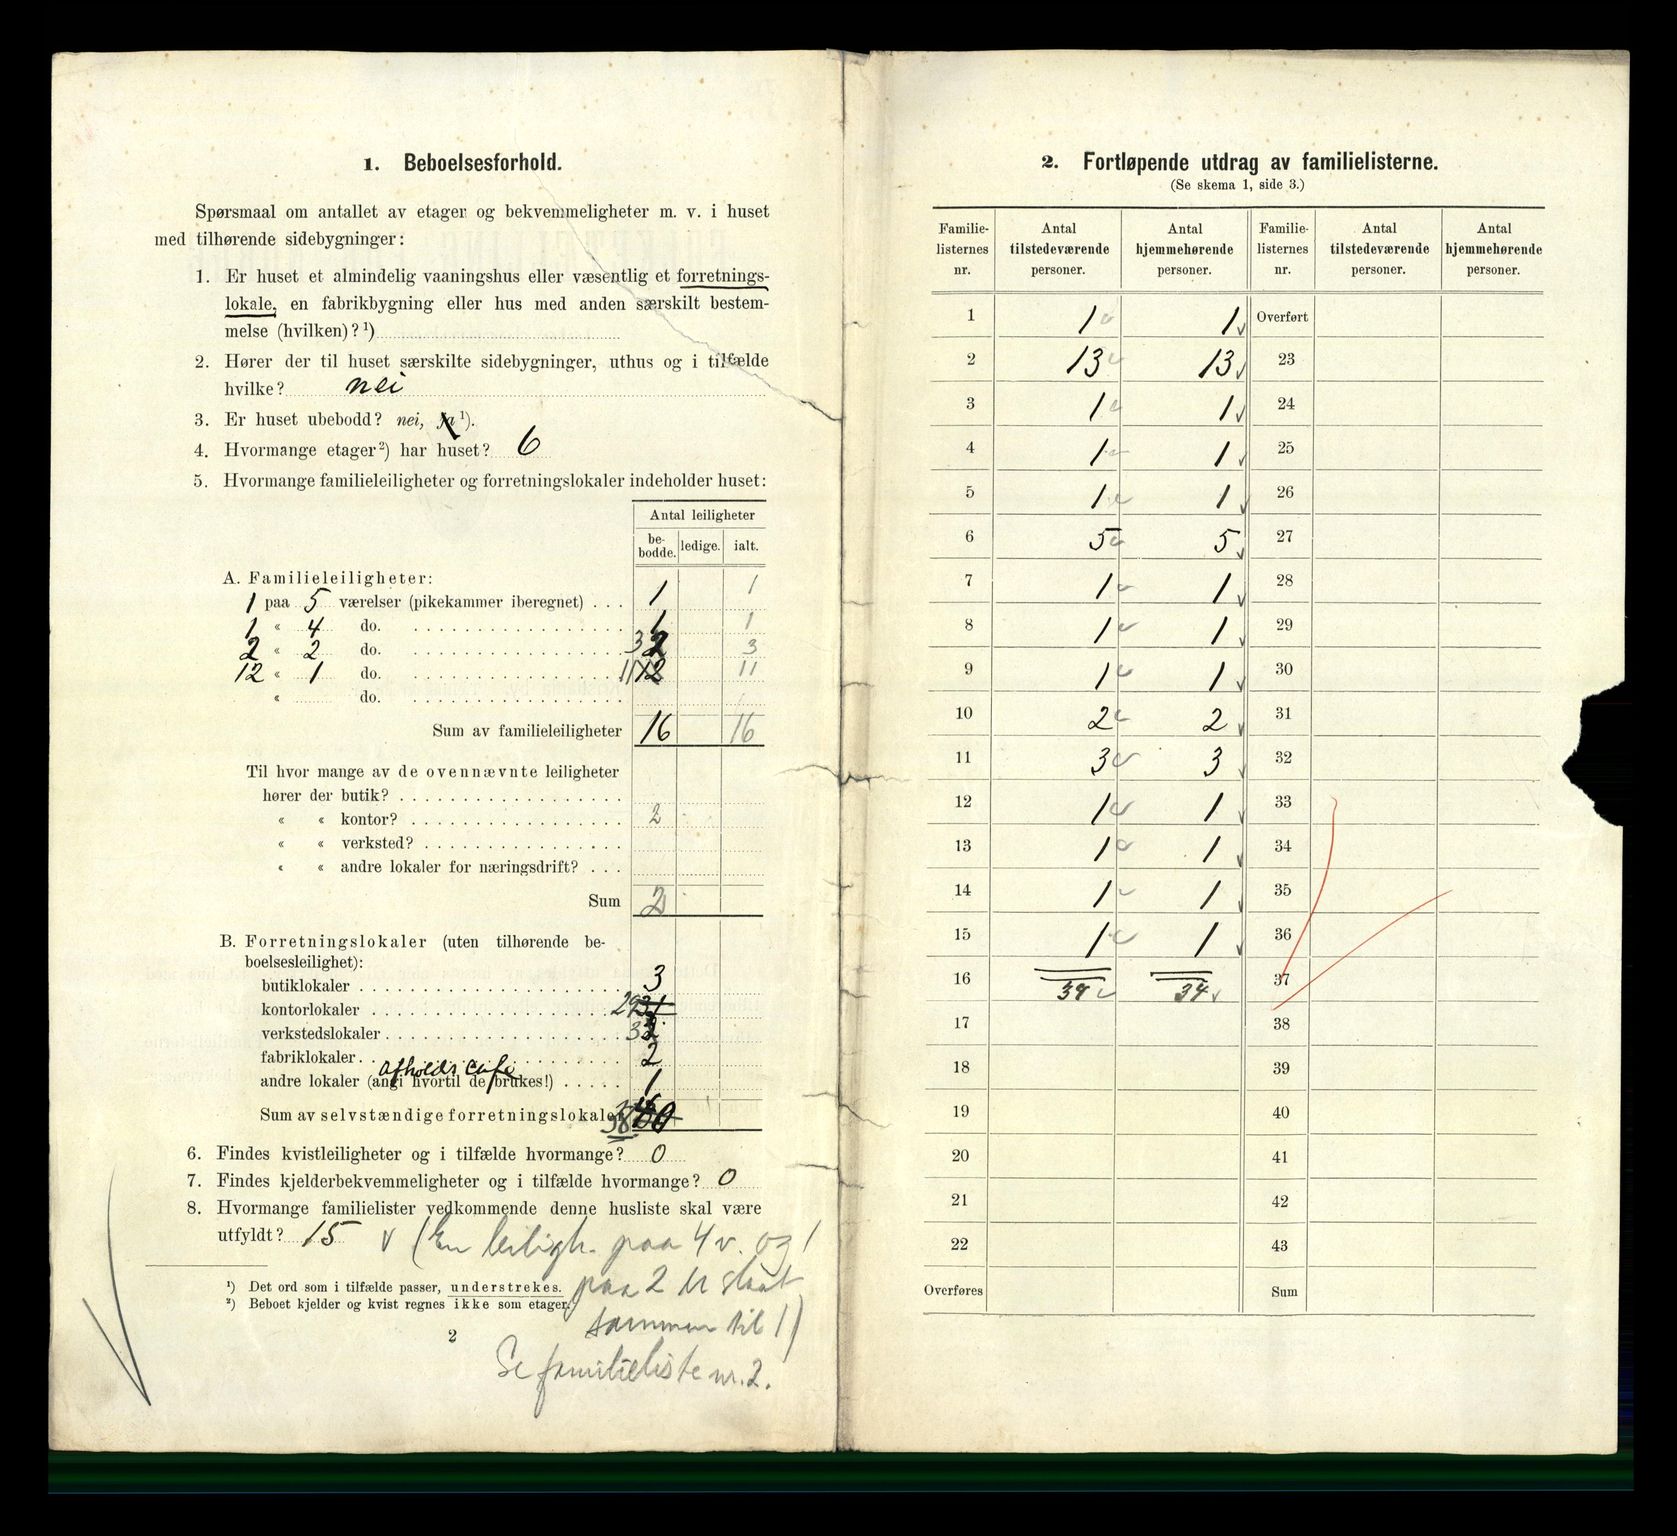 1. Beboelsesforhold.
Spørsmaal om antallet av etager og bekvemmeligheter m. v. i huset
med tilhørende sidebygninger:
1. Er huset et almindelig vaaningshus eller væsentlig et forretnings-
lokale, en fabrikbygning eller hus med anden særskilt bestem-
melse (hvilken)? ¹)
2. Hører der til huset særskilte sidebygninger, uthus og i tilfælde
hvilke? nei
3. Er huset ubebodd? nei, ja ¹).
4. Hvormange etager ²) har huset? 6
5. Hvormange familieleiligheter og forretningslokaler indeholder huset:
Antal leiligheter
be-
bodde. ledige. ialt.
A. Familieleiligheter:
1 paa 5 værelser (pikekammer iberegnet) . . . 1 1
1 « 4 do. 1 1
2 « 2 do. 3 2 3
12 « 1 do. 11 12 11
« do.
Sum av familieleiligheter 16 16
Til hvor mange av de ovennævnte leiligheter
hører der butik?
« « kontor? 2
« « verksted?
« « andre lokaler for næringsdrift? . . .
Sum 2
B. Forretningslokaler (uten tilhørende be-
boelsesleilighet):
butiklokaler 3
kontorlokaler 29 31
verkstedslokaler 3
fabriklokaler 2
afholds café
andre lokaler (angi hvortil de brukes!) 1
Sum av selvstændige forretningslokaler 38
6. Findes kvistleiligheter og i tilfælde hvormange? 0
7. Findes kjelderbekvemmeligheter og i tilfælde hvormange? 0
8. Hvormange familielister vedkommende denne husliste skal være
utfyldt? 15 v (En leiligh. paa 4 v. og 1
¹) Det ord som i tilfælde passer, understrekes.
paa 2 er slaat
²) Beboet kjelder og kvist regnes ikke som etager.
sammen til 1)
2
Se familieliste nr. 2.
2. Fortløpende utdrag av familielisterne.
(Se skema 1, side 3.)
Familie- Antal Antal Familie- Antal Antal
listernes tilstedeværende hjemmehørende listernes tilstedeværende hjemmehørende
nr. personer. personer. nr. personer. personer.
1 1 1 Overført
2 13 13 23
3 1 1 24
4 1 1 25
5 1 1 26
6 5 5 27
7 1 1 28
8 1 1 29
9 1 1 30
10 2 2 31
11 3 3 32
12 1 1 33
13 1 1 34
14 1 1 35
15 1 1 36
16 34 34 37
17 38
18 39
19 40
20 41
21 42
22 43
Overføres Sum